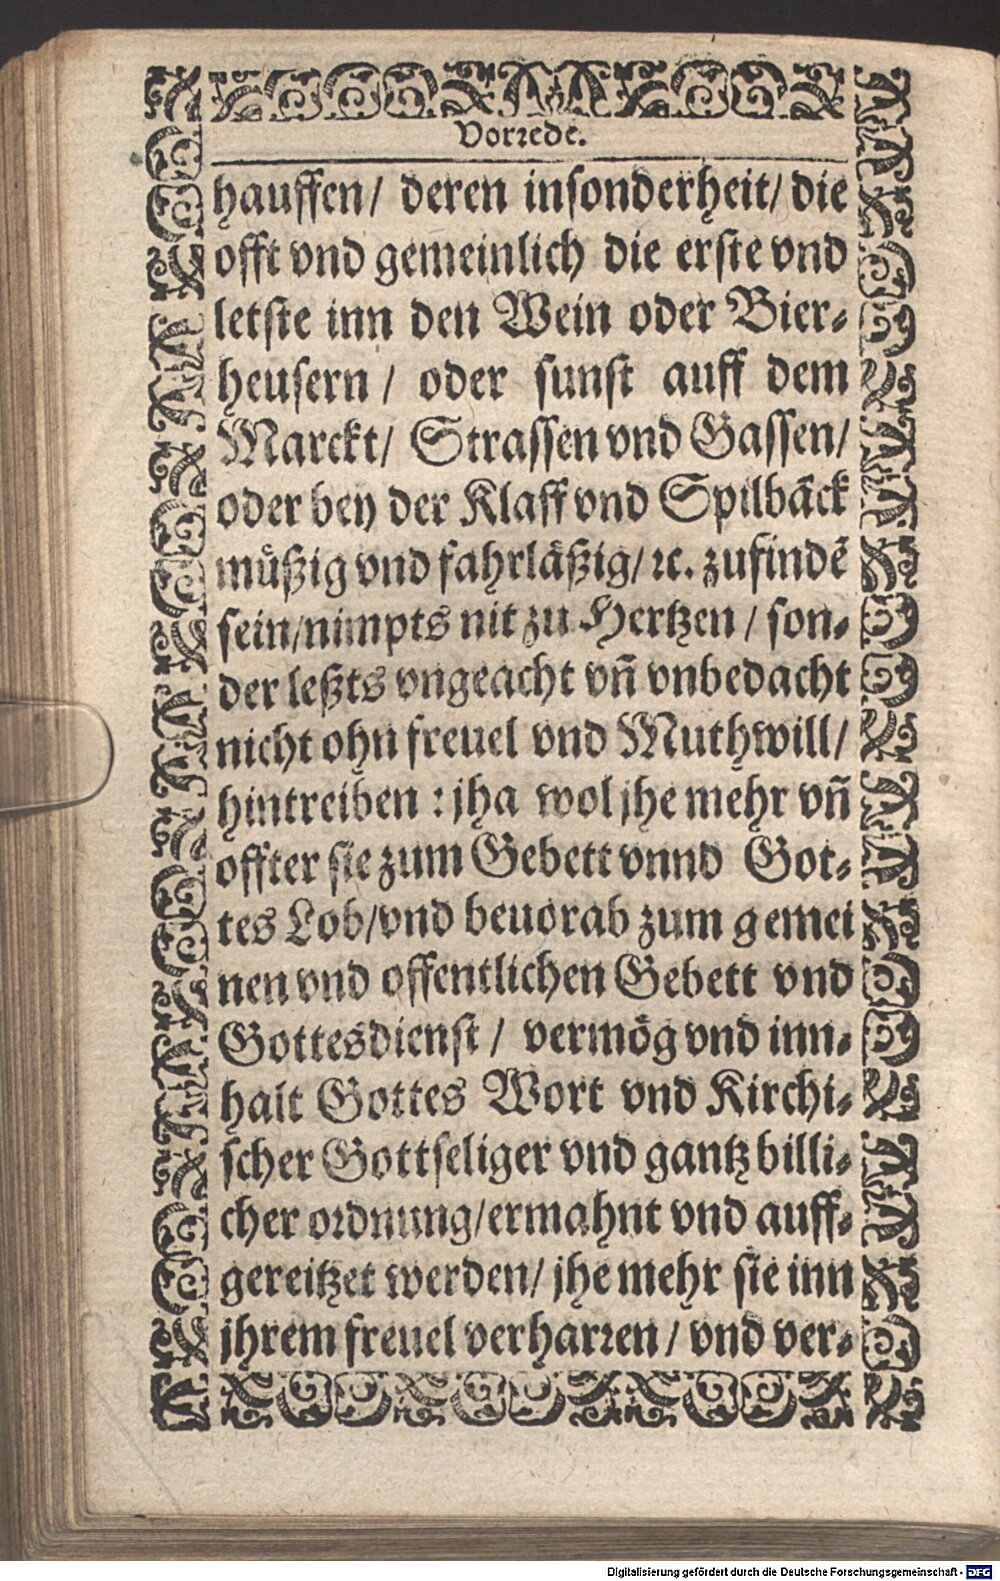 Vorrede.
hauffen/ deren insonderheit/ die
offt vnd gemeinlich die erste vnd
letste inn den Wein oder Bier-
heusern / oder sunst auff dem
Marckt/ Strassen vnd Gassen/
oder bey der Klaff vnd Spilbãck
müßig vnd fahrläßig/ ꝛc. zufindẽ
sein/nimpts nit zu Hertzen / son-
der leßts vngeacht vñ vnbedacht
nicht ohn freuel vnd Muthwill/
hintreiben : jha wol jhe mehr vñ
offter sie zum Gebett vnnd Got-
tes Lob/vnd beuorab zum gemei
nen vnd offentlichen Gebett vnd
Gottesdienst / vermög vnd inn-
halt Gottes Wort vnd Kirchi-
scher Gottseliger vnd gantz billi-
cher ordnung/ermahnt vnd auff-
gereitzet werden/ jhe mehr sie inn
jhrem freuel verharren / vnd ver-
Digitalisierung gefördert durch die Deutsche Forschungsgemeinschaft - DFG